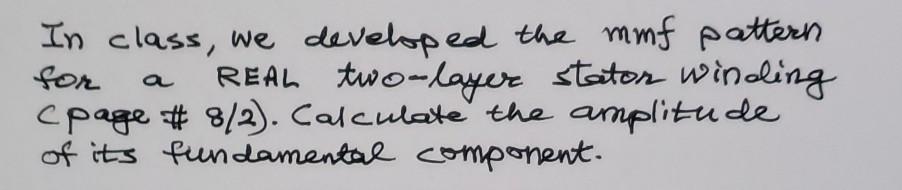 In class, we developed the mmf pattern
for a REAL two-layer stator winding
(page # 8/2). Calculate the amplitude
of its fundamental component.